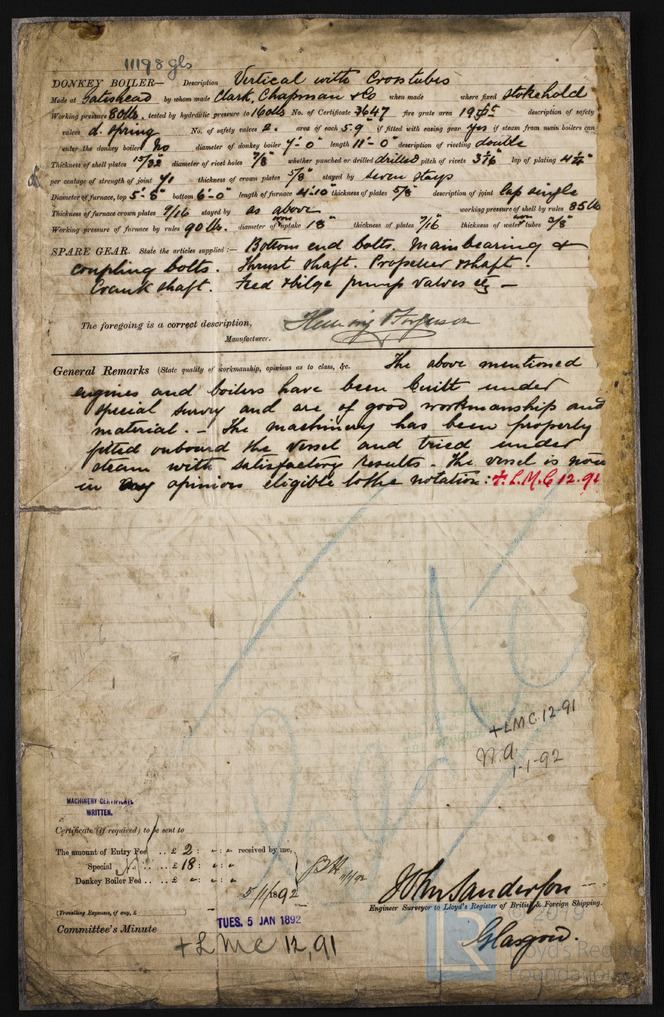 11198 gls
DONKEY BOILER— Description Vertical with Crosstubes
Made at Gateshead by whom made Clark, Chapman & Co when made where fixed Stokehold
Working pressure 80 lbs tested by hydraulic pressure to 160 lbs No. of Certificate 3647 fire grate area 19 description of safety
valves d. spring No. of safety valves 2. area of each 5.9 if fitted with easing gear yes if steam from main boilers can
enter the donkey boiler no diameter of donkey boiler 7'-0" length 11'-0" description of riveting double
Thickness of shell plates 15/32 diameter of rivet holes 7/8 whether punched or drilled drilled pitch of rivets lap of plating
per centage of strength of joint 71 thickness of crown plates 5/8 stayed by seven stays
Diameter of furnace, top 5'-8" bottom 6'-0" length of furnace 4'-10" thickness of plates 5/8 description of joint lap single
Thickness of furnace crown plates 9/16 stayed by as above working pressure of shell by rules 85 lb
Working pressure of furnace by rules 90 lb. diameter of uptake 18" thickness of plates 7/16 thickness of water tubes 3/8
SPARE GEAR. State the articles supplied:— Bottom end bolts. Main bearing &
coupling bolts. Thrust shaft. Propeller shaft.
Crank shaft. Feed & bilge pump valves etc —
The foregoing is a correct description,
Manufacturer.
General Remarks (State quality of workmanship, opinions as to class, &c. The above mentioned
engines and boilers have been built under
special survey and are of good workmanship and
material. – The machinery has been properly
fitted onboard the vessel and tried under
steam with satisfactory results. The vessel is now
in my opinion eligible to the notation: + L.M.C 12.91
+LMC.12.91
1-1-92
MACHINERY CERTIFICATE
WRITTEN.
Certificate (if required) to be sent to
The amount of Entry Fee .. £ 2 : - : - received by me,
Special .. £ 18 : - : -
Donkey Boiler Fee .. £ - : - : -
5/1/1892
(Travelling Expenses, if any, £
John Sanderson
Engineer Surveyor to Lloyd's Register of British & Foreign Shipping.
TUES. 5 JAN 1892
Committee's Minute
+ LMC 12,91
Glasgow.
© 2019
Lloyd's Register
Foundation